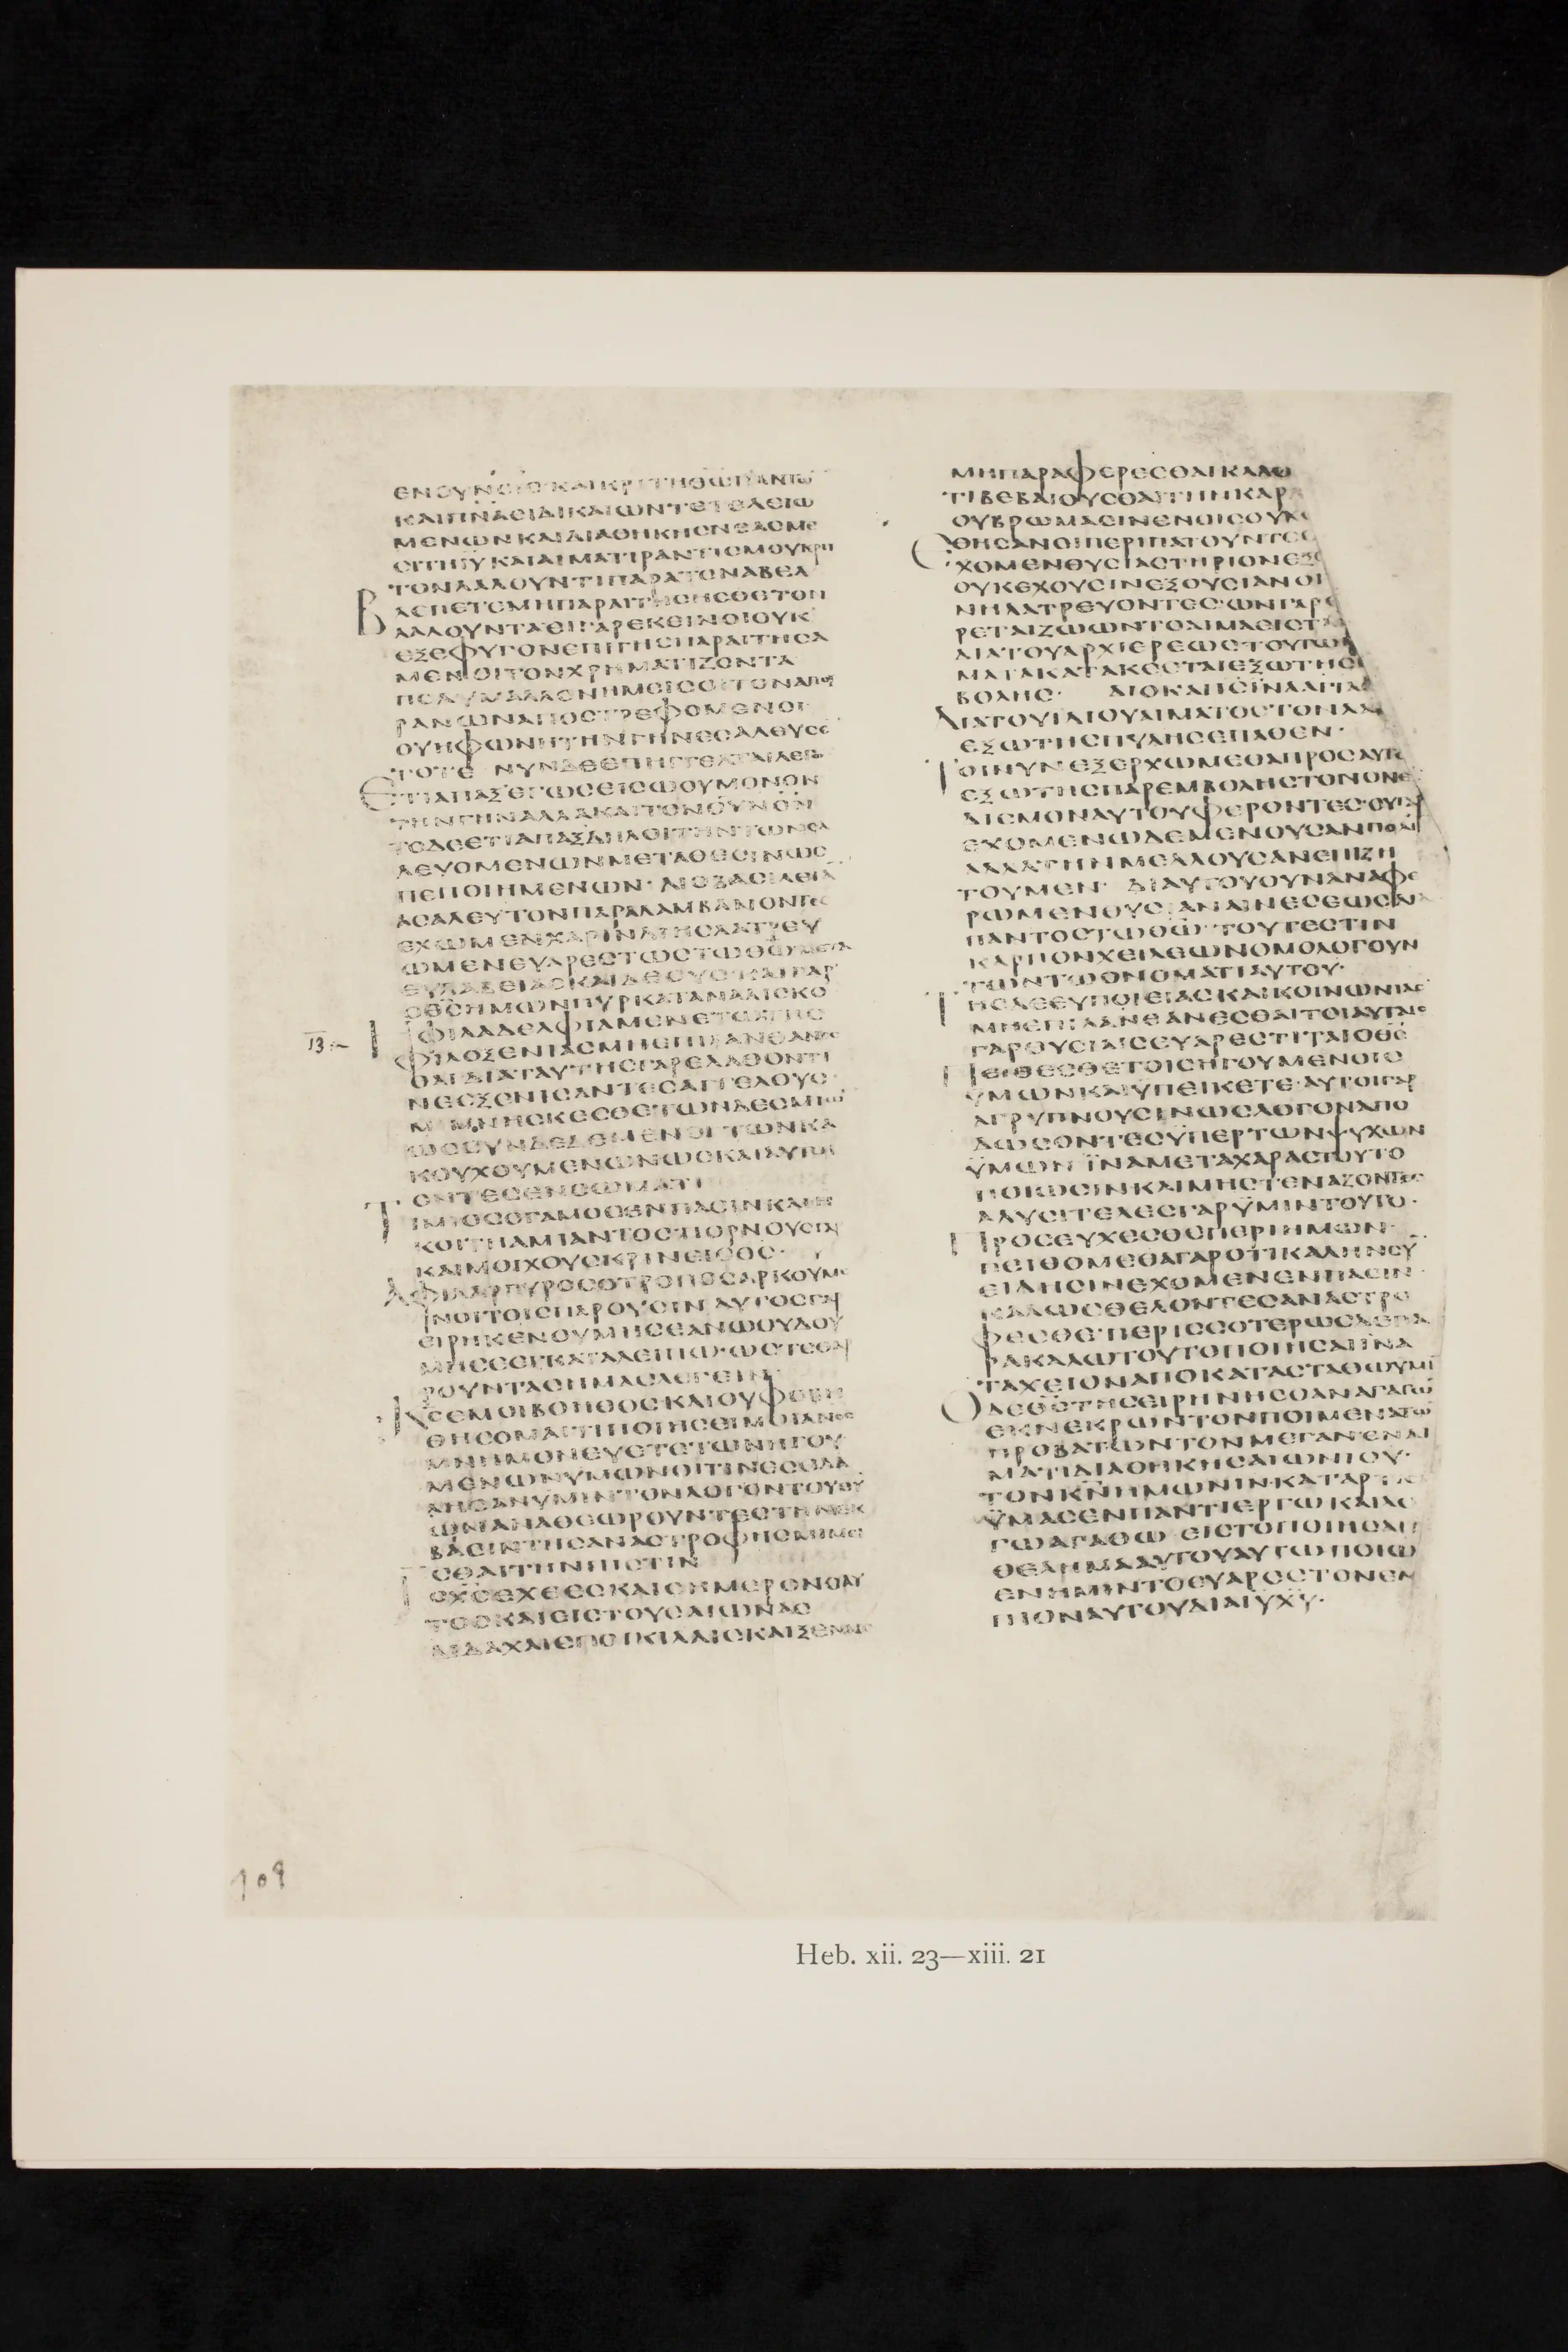 ΕΝΟΥΝΟΙΣΚΑΙΚΡΙΤΗΘΩΠΑΝΤΩ
ΚΑΙΠΝΑΣΙΔΙΚΑΙΩΝΤΕΤΕΛΕΙΩ
ΜΕΝΩΝΚΑΙΔΙΑΘΗΚΗΣΝΕΑΣΜΕ
ΣΙΤΗΙΥΚΑΙΑΙΜΑΤΙΡΑΝΤΙΣΜΟΥΚΡΙΤ
ΤΟΝΛΑΛΟΥΝΤΙΠΑΡΑΤΟΝΑΒΕΛ
ΒΛΕΠΕΤΕΜΗΠΑΡΑΙΤΗΣΗΣΘΕΤΟΝ
ΛΑΛΟΥΝΤΑΕΙΓΑΡΕΚΕΙΝΟΙΟΥΚ
ΕΞΕΦΥΓΟΝΕΠΙΓΗΣΠΑΡΑΙΤΗΣΑ
ΜΕΝΟΙΤΟΝΧΡΗΜΑΤΙΖΟΝΤΑ
ΠΟΛΥΜΑΛΛΟΝΗΜΕΙΣΟΙΤΟΝΑΠΟΥ
ΡΑΝΩΝΑΠΟΣΤΡΕΦΟΜΕΝΟΙ
ΟΥΗΦΩΝΗΤΗΝΓΗΝΕΣΑΛΕΥΣΕ
ΤΟΤΕ ΝΥΝΔΕΕΠΗΓΓΕΛΤΑΙΛΕΓΩ
ΕΤΙΑΠΑΞΕΓΩΣΕΙΣΩΟΥΜΟΝΟΝ
ΤΗΝΓΗΝΑΛΛΑΚΑΙΤΟΝΟΥΝΟΝ
ΤΟΔΕΕΤΙΑΠΑΞΔΗΛΟΙΤΗΝΤΩΝΣΑ
ΛΕΥΟΜΕΝΩΝΜΕΤΑΘΕΣΙΝΩΣ
ΠΕΠΟΙΗΜΕΝΩΝ· ΔΙΟΒΑΣΙΛΕΙΑ
ΑΣΑΛΕΥΤΟΝΠΑΡΑΛΑΜΒΑΝΟΝΤΕΣ
ΕΧΩΜΕΝΧΑΡΙΝΔΙΗΣΛΑΤΡΕΥ
ΩΜΕΝΕΥΑΡΕΣΤΩΣΤΩΘΩΜΕΤΑ
ΕΥΛΑΒΕΙΑΣΚΑΙΔΕΟΥΣ·ΚΑΙΓΑΡ
ΟΘΣΗΜΩΝΠΥΡΚΑΤΑΝΑΛΙΣΚΟ
13 ΗΦΙΛΑΔΕΛΦΙΑΜΕΝΕΤΩΤΗΣ
ΦΙΛΟΞΕΝΙΑΣΜΗΕΠΙΛΑΝΘΑΝΕΣ
ΘΑΙΔΙΑΤΑΥΤΗΣΓΑΡΕΛΑΘΟΝΤΙ
ΝΕΣΞΕΝΙΣΑΝΤΕΣΑΓΓΕΛΟΥΣ·
ΜΙΜΝΗΣΚΕΣΘΕΤΩΝΔΕΣΜΙΩ
ΩΣΣΥΝΔΕΔΕΜΕΝΟΙΤΩΝΚΑ
ΚΟΥΧΟΥΜΕΝΩΝΩΣΚΑΙΑΥΤΟΙ
ΟΝΤΕΣΕΝΣΩΜΑΤΙ
ΤΙΜΙΟΣΟΓΑΜΟΣΕΝΠΑΣΙΝΚΑΙΗ
ΚΟΙΤΗΑΜΙΑΝΤΟΣΠΟΡΝΟΥΣΓΑΡ
ΚΑΙΜΟΙΧΟΥΣΚΡΙΝΕΙΟΘΣ·
ΑΦΙΛΑΡΓΥΡΟΣΟΤΡΟΠΟΣΑΡΚΟΥΜΕ
ΝΟΙΤΟΙΣΠΑΡΟΥΣΙΝ ΑΥΤΟΣΓΑΡ
ΕΙΡΗΚΕΝΟΥΜΗΣΕΑΝΩΟΥΔΟΥ
ΜΗΣΕΕΓΚΑΤΑΛΕΙΠΩ·ΩΣΤΕΘΑΡ
ΡΟΥΝΤΑΣΗΜΑΣΛΕΓΕΙΝ
ΚΣΕΜΟΙΒΟΗΘΟΣΚΑΙΟΥΦΟΒΗ
ΘΗΣΟΜΑΙΤΙΠΟΙΗΣΕΙΜΟΙΑΝΟΣ
ΜΝΗΜΟΝΕΥΕΤΕΤΩΝΗΓΟΥ
ΜΕΝΩΝΥΜΩΝΟΙΤΙΝΕΣΕΛΑ
ΛΗΣΑΝΥΜΙΝΤΟΝΛΟΓΟΝΤΟΥΘΥ
ΩΝΑΝΑΘΕΩΡΟΥΝΤΕΣΤΗΝΕΚ
ΒΑΣΙΝΤΗΣΑΝΑΣΤΡΟΦΗΣΜΙΜΕΙ
ΣΘΑΙΤΗΝΠΙΣΤΙΝ
ΙΣΧΣΕΧΘΕΣΚΑΙΣΗΜΕΡΟΝΟΑΥ
ΤΟΣΚΑΙΕΙΣΤΟΥΣΑΙΩΝΑΣ
ΔΙΔΑΧΑΙΣΠΟΙΚΙΛΑΙΣΚΑΙΞΕΝΑΙΣ
ΜΗΠΑΡΑΦΕΡΕΣΘΑΙΚΑΛΟ
ΤΙΒΕΒΑΙΟΥΣΘΑΙΤΗΝΚΑΡ
ΟΥΒΡΩΜΑΣΙΝΕΝΟΙΣΟΥΚ
ΘΗΣΑΝΟΙΠΕΡΙΠΑΤΟΥΝΤΕΣ
ΕΧΟΜΕΝΘΥΣΙΑΣΤΗΡΙΟΝΕΞΟ
ΟΥΚΕΧΟΥΣΙΝΕΞΟΥΣΙΑΝΟΙ
ΝΗΛΑΤΡΕΥΟΝΤΕΣ·ΩΝΓΑΡ
ΡΕΤΑΙΖΩΩΝΤΟΑΙΜΑΕΙΣΤΑ
ΔΙΑΤΟΥΑΡΧΙΕΡΕΩΣΤΟΥΤΩΝ
ΜΑΤΑΚΑΤΑΚΕΕΤΑΙΕΞΩΤΗΣ
ΒΟΛΗΣ· ΔΙΟΚΑΙΙΣΙΝΑΑΓΙΑΣ
ΔΙΑΤΟΥΙΔΙΟΥΑΙΜΑΤΟΣΤΟΝΛΑΟ
ΕΞΩΤΗΣΠΥΛΗΣΕΠΑΘΕΝ·
ΤΟΙΝΥΝΕΞΕΡΧΩΜΕΘΑΠΡΟΣΑΥΤΟ
ΕΞΩΤΗΣΠΑΡΕΜΒΟΛΗΣΤΟΝΟΝΕΙ
ΔΙΣΜΟΝΑΥΤΟΥΦΕΡΟΝΤΕΣ·ΟΥΓΑΡ
ΕΧΟΜΕΝΩΔΕΜΕΝΟΥΣΑΝΠΟΛΙ
ΑΛΛΑΤΗΝΜΕΛΛΟΥΣΑΝΕΠΙΖΗ
ΤΟΥΜΕΝ· ΔΙΑΥΤΟΥΟΥΝΑΝΑΦΕ
ΡΩΜΕΝΘΥΣΙΑΝΑΙΝΕΣΕΩΣΔΙΑ
ΠΑΝΤΟΣΤΩΘΩ ΤΟΥΤΕΣΤΙΝ
ΚΑΡΠΟΝΧΕΙΛΕΩΝΟΜΟΛΟΓΟΥΝ
ΤΩΝΤΩΟΝΟΜΑΤΙΑΥΤΟΥ·
ΤΗΣΔΕΕΥΠΟΙΕΙΑΣΚΑΙΚΟΙΝΩΝΙΑΣ
ΜΗΕΠΙΛΑΝΘΑΝΕΣΘΑΙΤΟΙΑΥΤΑΙΣ
ΓΑΡΘΥΣΙΑΙΣΕΥΑΡΕΣΤΙΤΑΙΟΘΣ
ΠΕΙΘΕΣΘΕΤΟΙΣΗΓΟΥΜΕΝΟΙΣ
ΥΜΩΝΚΑΙΥΠΕΙΚΕΤΕ·ΑΥΤΟΙΓΑΡ
ΑΓΡΥΠΝΟΥΣΙΝΩΣΛΟΓΟΝΑΠΟ
ΔΩΣΟΝΤΕΣΥΠΕΡΤΩΝΨΥΧΩΝ
ΥΜΩΝ ΙΝΑΜΕΤΑΧΑΡΑΣΤΟΥΤΟ
ΠΟΙΩΣΙΝΚΑΙΜΗΣΤΕΝΑΖΟΝΤΕΣ
ΑΛΥΣΙΤΕΛΕΣΓΑΡΥΜΙΝΤΟΥΤΟ·
ΠΡΟΣΕΥΧΕΣΘΕΠΕΡΙΗΜΩΝ·
ΠΕΙΘΟΜΕΘΑΓΑΡΟΤΙΚΑΛΗΝΣΥ
ΕΙΔΗΣΙΝΕΧΟΜΕΝΕΝΠΑΣΙΝ
ΚΑΛΩΣΘΕΛΟΝΤΕΣΑΝΑΣΤΡΕ
ΦΕΣΘΕ·ΠΕΡΙΣΣΟΤΕΡΩΣΔΕΠΑ
ΡΑΚΑΛΩΤΟΥΤΟΠΟΙΗΣΑΙΙΝΑ
ΤΑΧΕΙΟΝΑΠΟΚΑΤΑΣΤΑΘΩΥΜΙ
ΟΔΕΘΣΤΗΣΕΙΡΗΝΗΣΟΑΝΑΓΑΓΩ
ΕΚΝΕΚΡΩΝΤΟΝΠΟΙΜΕΝΑΤΩ
ΠΡΟΒΑΤΩΝΤΟΝΜΕΓΑΝΕΝΑΙ
ΜΑΤΙΔΙΑΘΗΚΗΣΑΙΩΝΙΟΥ·
ΤΟΝΚΝΗΜΩΝΙΝ·ΚΑΤΑΡΤΙΣ
ΥΜΑΣΕΝΠΑΝΤΙΕΡΓΩΚΑΙΛΟ
ΓΩΑΓΑΘΩ ΕΙΣΤΟΠΟΙΗΣΑΙΤ
ΘΕΛΗΜΑΑΥΤΟΥΑΥΤΩΠΟΙΩ
ΕΝΗΜΙΝΤΟΕΥΑΡΕΣΤΟΝΕΝ
ΠΙΟΝΑΥΤΟΥΔΙΑΙΥΧΥ·
109
Heb. xii. 23—xiii. 21